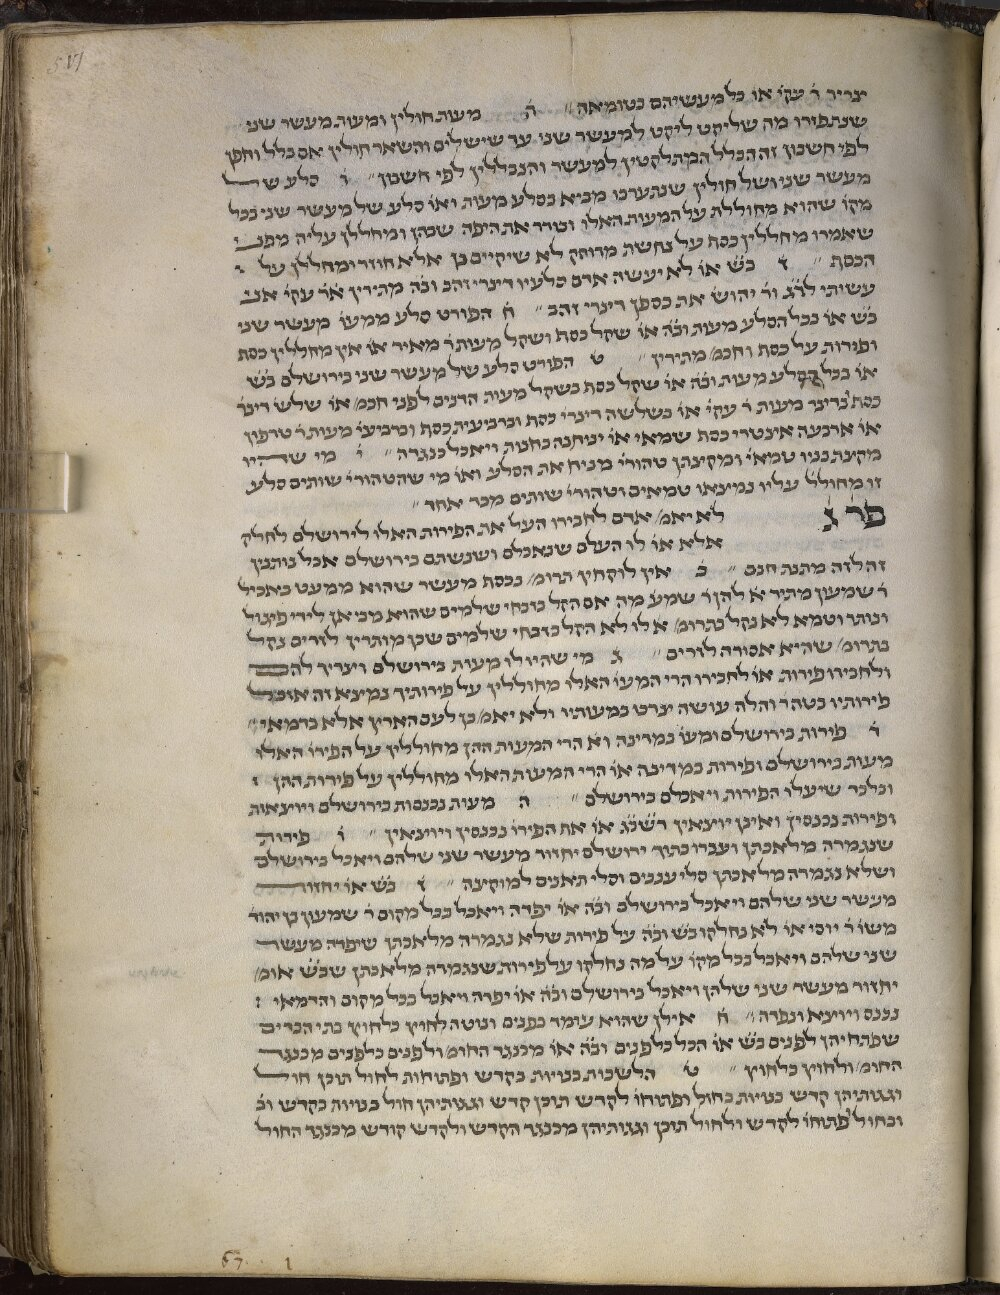 יצריד ר֗ עקי֗ או֗ כל מעשיהם בטומאה ״ ה֗ מעות חולין ומעות מעשר שני
שנתפזרו מה שליקט ליקט למעשר שני עד שישלים והשאר חולין אם בלל וחפן
לפי חשבון זה הכלל המתלקטין למעשר והנבללין לפי חשבון ״ ו֗ סלע של
מעשר שני ושל חולין שנתערבו מביא בסלע מעות ואו֗ סלע של מעשר שני בכל
מקו֗ שהוא מחוללת על המעות האלו ובורר את היפה שבהן ומחללן עליה מפני
שאמרו מחללין כסף על נחשת מדוחק לא שיקיים כן אלא חוזר ומחללן על
הכסף ״ ז֗ בש֗ או֗ לא יעשה אדם סלעיו דינרי זהב וב֗ה מתירין או֗ר עקי֗ אני
עשיתי לר֗ג ור֗ יהוש֗ את כספן דינרי זהב ״ ח֗ הפורט סלע ממעו֗ מעשר שני
בש֗ או֗ בכל הסלע מעות וב֗ה או֗ שקל כסף ושקל מעות ר֗ מאיר או֗ אין מחללין כסף
ופירות על כסף וחכמ֗ מתירין ״ ט֗ הפורט סלע של מעשר שני בירושלם בש֗
או֗ בכל הסלע מעות וב֗ה או֗ שקל כסף בשקל מעות הדנים לפני חכמ֗ או֗ שלש דינר
כסף בדינר מעות ר֗ עקי֗ או֗ בשלשה דינרי כסף וברביעית כסף וברביעי֗ מעות ר֗ טרפון
או֗ ארבעה איסטרי כסף שמאי או֗ יניחנה בחנות ויאכל כנגדה ״ י֗ מי שהיו
מקצת בניו טמאי֗ ומקצתן טהורי֗ מניח את הסלע ואו֗ מי שהטהורי֗ שותים סלע
זו מחולל עליו נמצאו טמאים וטהורי֗ שותים מכד אחד ״
פר֗ ג֗ לא יאמ֗ אדם לחבירו העל את הפירות האלו לירושלם לחלק
אלא או֗ לו העלם שנאכלם ושנשתם בירושלם אבל נותנין
זה לזה מתנת חנם ״ ב֗ אין לוקחין תרומ֗ בכסף מעשר שהוא ממעט באכיל
ר֗ שמעון מתיר א֗ להן ר֗ שמע֗ מה אם הקל בזבחי שלמים שהוא מביאן לידי פיגול
ונותר וטמא לא נקל בתרומ֗ א֗ לו לא הקל בזבחי שלמים שכן מותרין לזרים נקל
בתרומ֗ שהיא אסורה לזרים ״ ג֗ מי שהיו לו מעות בירושלם וצריך להם
ולחבירו פירות או֗ לחבירו הרי המעו֗ האלו מחוללין על פירותיך נמצא זה אוכל
פירותיו בטהר֗ והלה עושה צרכו במעותיו ולא יאמ֗ כן לעם הארץ אלא בדמאי
ד֗ פירות בירושלם ומעו֗ במדינה וא֗ הרי המעות ההן מחוללין על הפירו֗ האלו
מעות בירושלם ופירות במדינה או֗ הרי המעות האלו מחוללין על פירות ההן
ובלבד שיעלו הפירות ויאכלם בירושלם ״ ה֗ מעות נכנסות בירושלם ויוצאות
ופירות נכנסין ואינן יוצאין רש֗ב֗ג או֗ את הפירו֗ נכנסין ויוצאין ״ ו֗ פירות
שנגמרה מלאכתן ועברו בתוך ירושלם יחזור מעשר שני שלהם ויאכל בירושלם
ושלא נגמרה מלאכתן סלי ענבים וסלי תאנים למוקצה ״ ז֗ בש֗ או֗ יחזור
מעשר שני שלהם ויאכל בירושלם וב֗ה או֗ יפדה ויאכל בכל מקום ר֗ שמעון בן יהוד֗
משו֗ ר֗ יוסי או֗ לא נחלקו בש֗ וב֗ה על פירות שלא נגמרה מלאכתן שיפדה מעשר
שני שלהם ויאכל בכל מקו֗ על מה נחלקו על פירות שנגמרה מלאכתן שבש֗ אומ֗
יחזור מעשר שני שלהן ויאכל בירושלם וב֗ה או֗ יפדה ויאכל בכל מקום והדמאי
נכנס ויוצא ונפדה ״ ח֗ אילן שהוא עומד בפנים ונוטה לחוץ כלחוץ בתי הבדים
שפתחיהן לפנים בש֗ או֗ הכל כלפנים וב֗ה או֗ מכנגד החומ֗ ולפנים כלפנים מכנגד
החומ֗ ולחוץ כלחוץ ״ ט֗ הלשכות בנויות בקדש ופתוחות לחול תוכן חול
וגגותיהן קדש בנויות בחול ופתוחו֗ לקדש תוכן קדש וגגותיהן חול בנויות בקדש וב֗
ובחול פתוחו֗ לקדש ולחול תוכן וגגותיהן מכנגד הקדש ולקדש קודש מכנגד החול
67 1